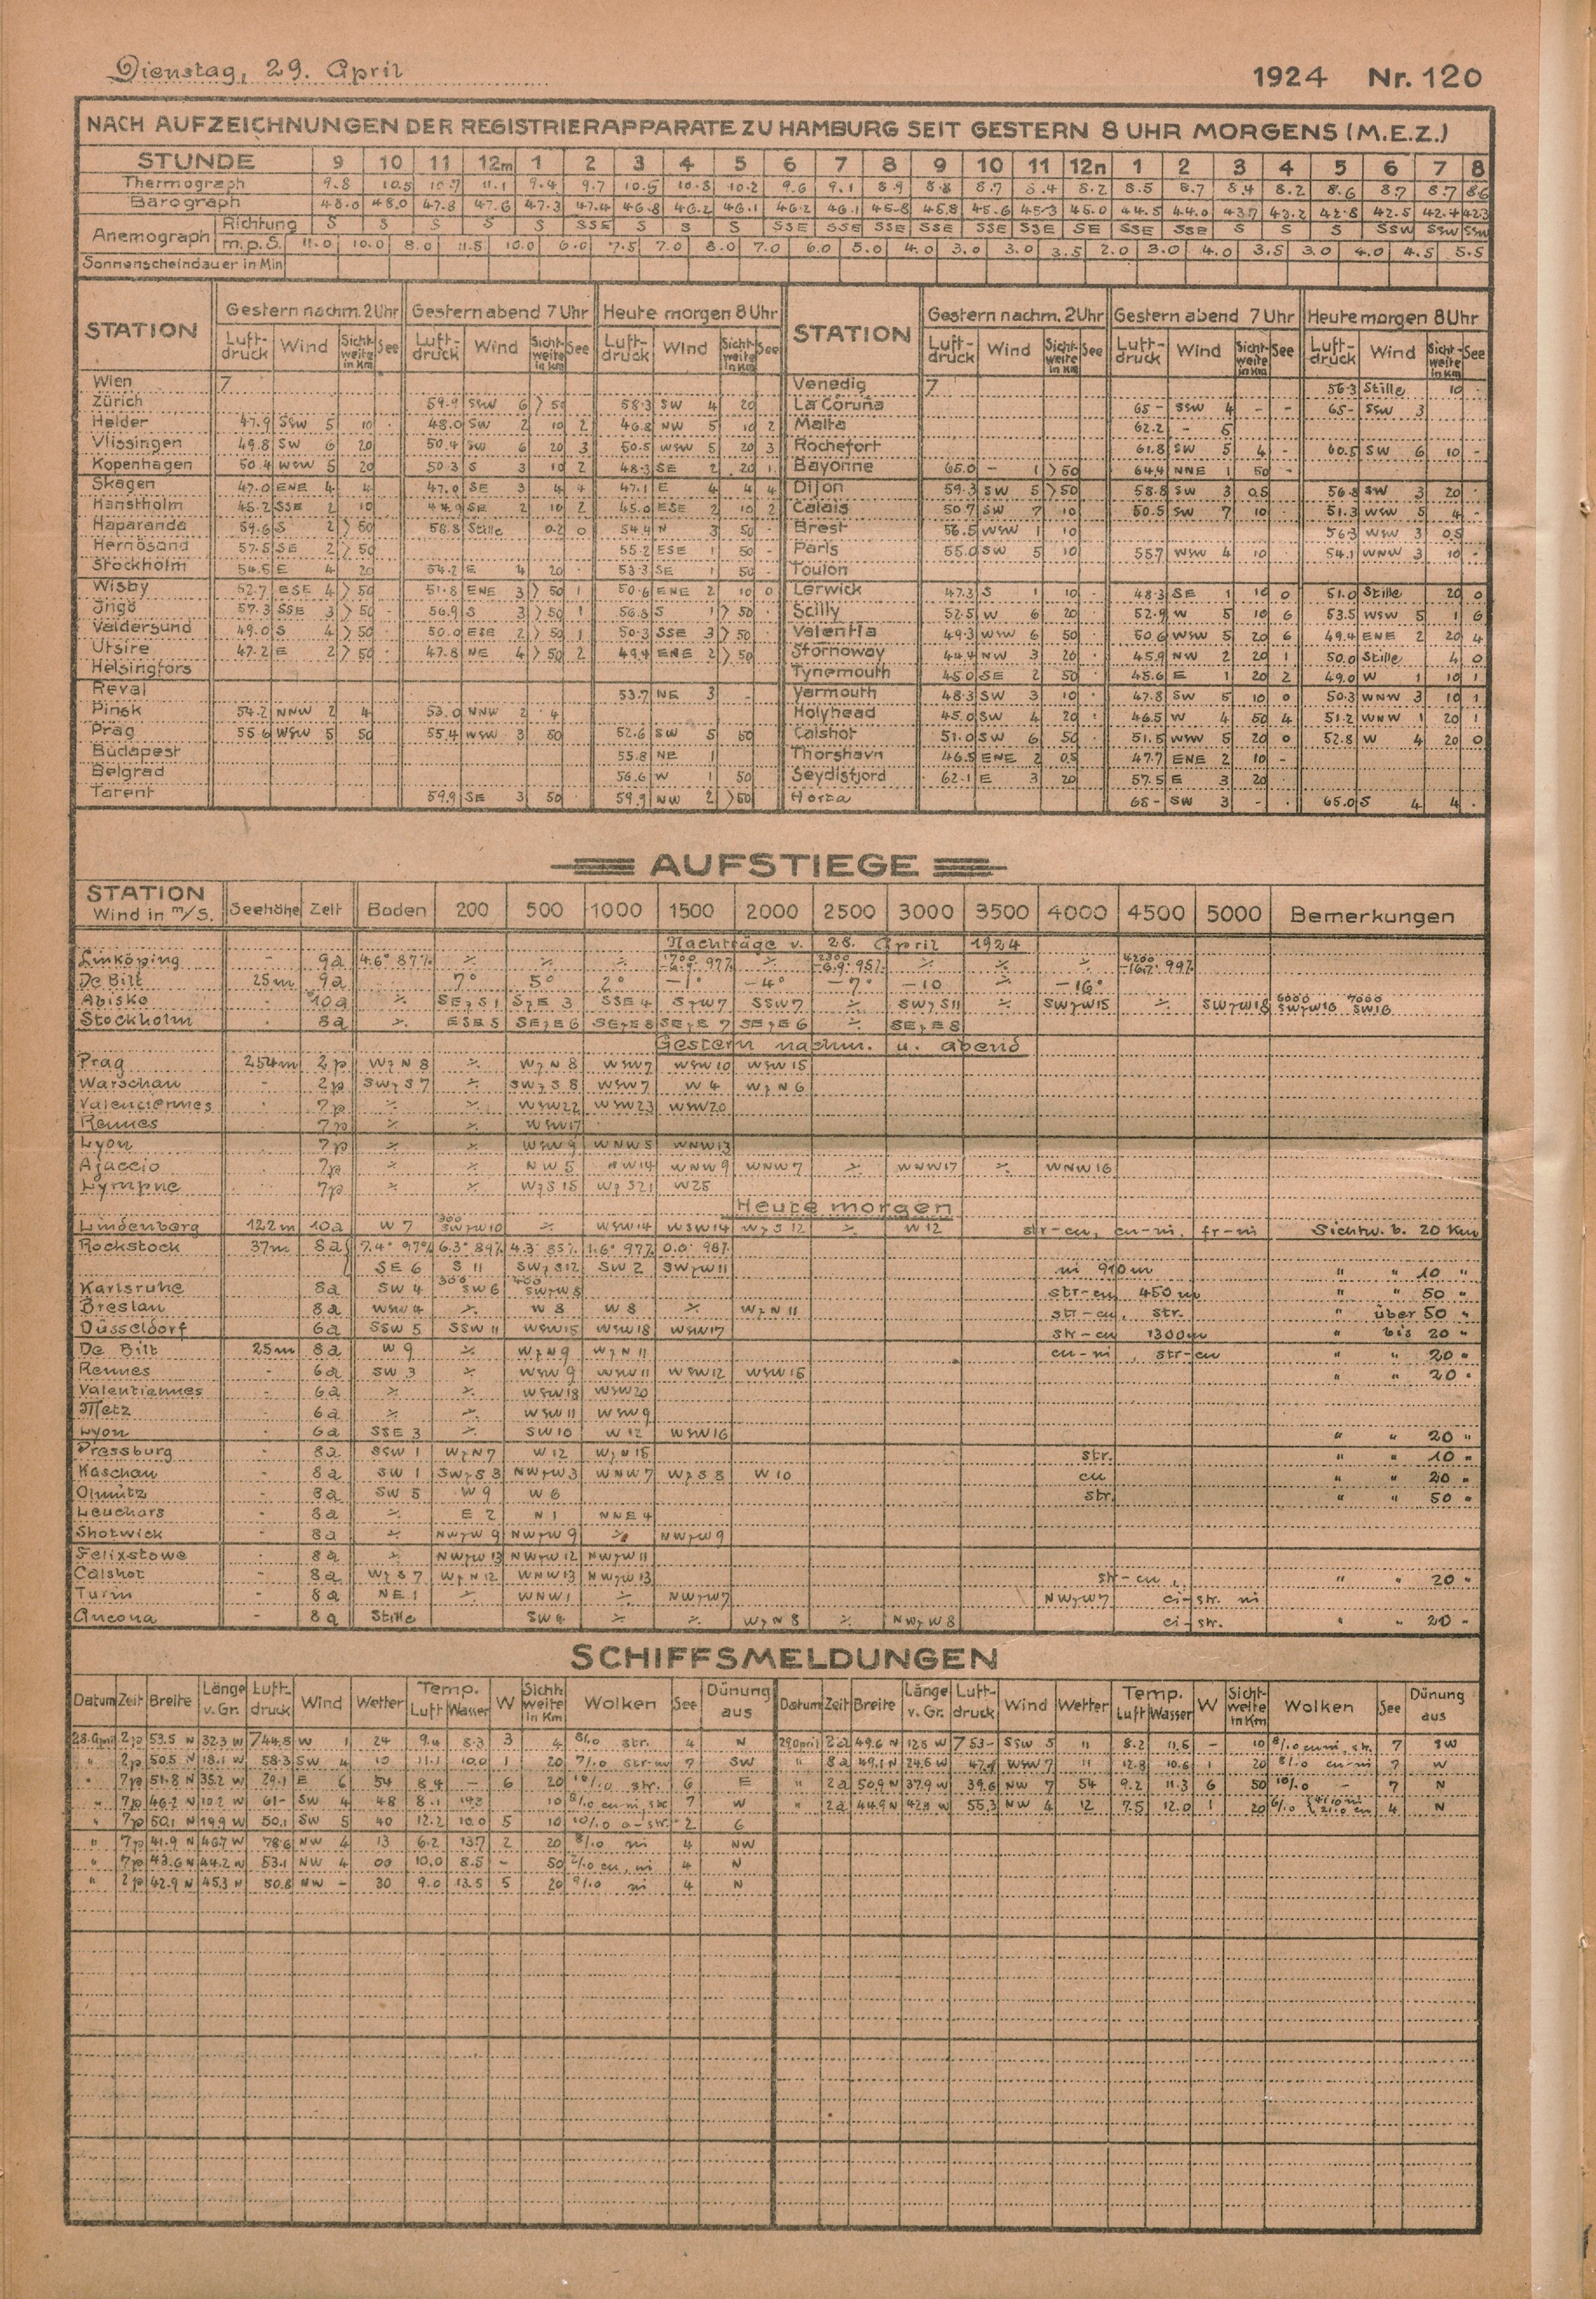 Dienstag, 29. April 1924 Nr. 120
NACH AUFZEICHNUNGEN DER REGISTRIERAPPARATE ZU HAMBURG SEIT GESTERN 8 UHR MORGENS (M.E.Z.)
STUNDE 9 10 11 12m 1 2 3 4 5 6 7 8 9 10 11 12n 1 2 3 4 5 6 7 8
Thermograph 9.8 10.5 10.7 11.1 9.4 9.7 10.5 10.8 10.2 9.6 9.1 8.9 8.8 8.7 8.4 8.2 8.5 8.7 8.4 8.2 8.6 8.7 8.7 8.6
Barograph 48.0 48.0 47.8 47.6 47.3 47.4 46.8 46.2 46.1 46.2 46.1 45.8 45.8 45.6 45.3 45.0 44.5 44.0 43.7 43.2 42.8 42.5 42.4 42.3
Anemograph Richtung S S S S S SSE S S S SSE SSE SSE SSE SSE SSE SE SSE SSE S S S SSW SSW SSW
m.p.S. 11.0 10.0 8.0 11.5 10.0 6.0 7.5 7.0 8.0 7.0 6.0 5.0 4.0 3.0 3.0 3.5 2.0 3.0 4.0 3.5 3.0 4.0 4.5 5.5
Sonnenscheindauer in Min
STATION Gestern nachm. 2 Uhr Gestern abend 7 Uhr Heute morgen 8 Uhr STATION Gestern nachm. 2 Uhr Gestern abend 7 Uhr Heute morgen 8 Uhr
Luft-druck Wind Sicht-weite in Km See Luft-druck Wind Sicht-weite in Km See Luft-druck Wind Sicht-weite in Km See Luft-druck Wind Sicht-weite in Km See Luft-druck Wind Sicht-weite in Km See Luft-druck Wind Sicht-weite in Km See
Wien 7 Venedig 7 56.3 Stille 10
Zürich 59.9 SSW 6 >50 58.3 SW 4 20 La Coruña 65- SSW 4 - - 65- SSW 3
Helder 47.9 SSW 5 10 48.0 SW 2 10 2 46.8 NW 5 10 2 Malta 62.2 - 5
Vlissingen 49.8 SW 6 20 50.4 SW 6 20 3 50.5 WSW 5 20 3 Rochefort 61.8 SW 5 4 - 60.5 SW 6 10 -
Kopenhagen 50.4 WSW 5 20 50.3 S 3 10 2 48.3 SE 2 20 1 Bayonne 65.0 - 1 >50 64.4 NNE 1 50 -
Skagen 47.0 ENE 4 4 47.0 SE 3 4 4 47.1 E 4 4 4 Dijon 59.3 SW 5 >50 58.8 SW 3 0.5 56.8 SW 3 20
Hanstholm 45.2 SSE 2 10 44.9 SE 2 10 2 45.0 ESE 2 10 2 Calais 50.7 SW 7 10 50.5 SW 7 10 51.3 WSW 5 4 -
Haparanda 59.6 S 2 >50 58.8 Stille 0.2 0 54.4 N 3 50 Brest 56.5 WSW 1 10 56.3 WSW 3 0.5
Hernösand 57.5 SE 2 >50 55.2 ESE 1 50 - Paris 55.0 SW 5 10 55.7 WSW 4 10 54.1 WNW 3 10 -
Stockholm 54.5 E 4 20 54.2 E 4 20 53.3 SE 1 50 - Toulon
Wisby 52.7 ESE 4 >50 51.8 ENE 3 >50 1 50.6 ENE 2 10 0 Lerwick 47.3 S 1 10 48.3 SE 1 10 0 51.0 Stille 20 0
Ingö 57.3 SSE 3 >50 56.9 S 3 >50 1 56.8 S 1 >50 Scilly 52.5 W 6 20 52.9 W 5 10 6 53.5 WSW 5 1 6
Valdersund 49.0 S 4 >50 50.0 ESE 2 >50 1 50.3 SSE 3 >50 Valentia 49.3 WSW 6 50 50.6 WSW 5 20 6 49.4 ENE 2 20 4
Utsire 47.2 E 2 >50 47.8 NE 4 >50 2 49.4 ENE 2 >50 Stornoway 44.4 NW 3 20 45.9 NW 2 20 1 50.0 Stille 4 0
Helsingfors Tynemouth 45.0 SE 2 50 45.6 E 1 20 2 49.0 W 1 10 1
Reval 53.7 NE 3 - Yarmouth 48.3 SW 3 10 47.8 SW 5 10 0 50.3 WNW 3 10 1
Pinsk 54.2 NNW 2 4 53.0 NNW 2 4 Holyhead 45.0 SW 4 20 46.5 W 4 50 4 51.2 WNW 1 20 1
Prag 55.6 WSW 5 50 55.4 WSW 3 50 52.6 SW 5 50 Calshot 51.0 SW 6 50 51.5 WSW 5 20 0 52.8 W 4 20 0
Budapest 55.8 NE 1 Thorshavn 46.5 ENE 2 0.5 47.7 ENE 2 10 -
Belgrad 56.6 W 1 50 Seydisfjord 62.1 E 3 20 57.5 E 3 20
Tarent 59.9 SE 3 50 59.9 NW 2 >50 Horta 65- SW 3 - 65.0 S 4 4
AUFSTIEGE
STATION Wind in m/s. Seehöhe Zeit Boden 200 500 1000 1500 2000 2500 3000 3500 4000 4500 5000 Bemerkungen
Nachträge v. 28. April 1924
Linköping - 9a 4.6° 87% ⁒ ⁒ ⁒ 1700 97% ⁒ 2300 -6.9° 95% ⁒ ⁒ ⁒ 4200 -16.2° 99%
De Bilt 25m 9a 7° 5° 2° -1° -4° -7° -10 ⁒ -16°
Abisko 10a ⁒ SEzS1 SzE 3 SSE 4 SzW7 SSW7 ⁒ SWzS11 ⁒ SWzW15 ⁒ SWzW18 6000 SWzW16 7000 SW16
Stockholm 8a ⁒ ESE5 SEzE6 SEzE8 SEzE 7 SEzE6 ⁒ SEzE8
Gestern nachm. u. abend
Prag 254m 2p WzN 8 ⁒ WzN 8 WSW7 WSW10 WSW15
Warschau - 2p SWzS7 ⁒ SWzS 8 WSW7 W 4 WzN6
Valenciennes 7p ⁒ ⁒ WSW22 WSW23 WSW20
Rennes 7p ⁒ ⁒ WSW17
Lyon 7p ⁒ ⁒ WSW9 WNW5 WNW13
Ajaccio 7p ⁒ ⁒ NW 5 NW14 WNW 9 WNW 7 ⁒ WNW17 ⁒ WNW16
Lympne 7p ⁒ ⁒ WzS15 WzS21 W25
Heute morgen
Lindenberg 122m 10a W 7 300 SWzW10 ⁒ WSW14 WSW14 WzS12 ⁒ W12 str-cu, cu-ni, fr-ni Sichtw. b. 20 Km
Rockstock 37m 8a 7.4° 97% 6.3° 89% 4.3° 85% 1.6° 97% 0.0° 98%
SE 6 S 11 SWzS12 SW 2 SWzW11 ni 910m " " 10 "
Karlsruhe 8a SW 4 300 SW6 400 SWzW8 str-cu 450m " " 50 "
Breslau 8a WSW4 ⁒ W 8 W 8 ⁒ WzN 11 str-cu, str. " über 50 "
Düsseldorf 6a SSW 5 SSW 11 WSW15 WSW18 WSW17 str-cu 1300m " bis 20 "
De Bilt 25m 8a W 9 ⁒ WzN9 WzN 11 cu-ni, str-cu " " 20 "
Rennes - 6a SW 3 ⁒ WSW 9 WSW11 WSW12 WSW15 " " 20 "
Valentiennes - 6a ⁒ ⁒ WSW18 WSW20
Metz - 6a ⁒ ⁒ WSW11 WSW9
Lyon - 6a SSE 3 ⁒ SW10 W12 WSW16 " " 20 "
Pressburg - 8a SSW 1 WzN7 W12 WzN15 str. " " 10 "
Kaschau - 8a SW 1 SWzS 3 NWzW3 WNW 7 WzS8 W10 cu " " 20 "
Olmütz - 8a SW 5 W 9 W 6 str. " " 50 "
Leuchars - 8a ⁒ E 2 N 1 NNE 4
Shotwick - 8a ⁒ NWzW 9 NWzW 9 ⁒ NWzW9
Felixstowe - 8a ⁒ NWzW13 NWzW12 NWzW11
Calshot - 8a WzS7 WzN12 WNW13 NWzW13 str-cu, " " 20 "
Turin - 8a NE 1 ⁒ WNW1 ⁒ NWzW7 NWzW7 ci-str. ni
Ancona - 8a Stille SW4 ⁒ ⁒ WzN8 ⁒ NWzW8 ci-str. " " 20 "
SCHIFFSMELDUNGEN
Datum Zeit Breite Länge v. Gr. Luft-druck Wind Wetter Temp. Luft Wasser W Sicht-weite in Km Wolken See Dünung aus Datum Zeit Breite Länge v. Gr. Luft-druck Wind Wetter Temp. Luft Wasser W Sicht-weite in Km Wolken See Dünung aus
28.April 2p 53.5 N 32.3 W 744.8 W 1 24 9.4 8.3 3 4 8/10 str. 4 N 29April 2a 49.6 N 12.8 W 753- SSW 5 11 8.2 11.6 - 10 8/10 cu ni, str. 7 SW
" 2p 50.5 N 18.1 W 58.3 SW 4 10 11.1 10.0 1 20 7/10 str-cu 7 SW " 8a 49.1 N 24.6 W 47.9 WSW 7 11 12.8 10.6 1 20 8/10 cu-ni 7 W
" 7p 51.8 N 35.2 W 29.1 E 6 54 8.4 - 6 20 10/10 str. 6 E " 2a 50.9 N 37.9 W 39.6 NW 7 54 9.2 11.3 6 50 10/10 - 7 N
" 7p 46.2 N 10.2 W 61- SW 4 48 8.1 14.3 10 8/10 cu-ni, str 7 W " 2a 44.9 N 42.8 W 55.3 NW 4 12 7.5 12.0 1 20 6/10 4/10 ni 2/10 cu 4 N
" 7p 50.1 N 19.9 W 50.1 SW 5 40 12.2 10.0 5 10 10/10 a-str. 2 G
" 7p 41.9 N 46.7 W 78.6 NW 4 13 6.2 13.7 2 20 8/10 ni 4 NW
" 7p 43.6 N 44.2 W 53.1 NW 4 00 10.0 8.5 - 50 2/10 cu, ni 4 N
" 2p 42.9 N 45.3 N 50.8 NW - 30 9.0 13.5 5 20 9/10 ni 4 N